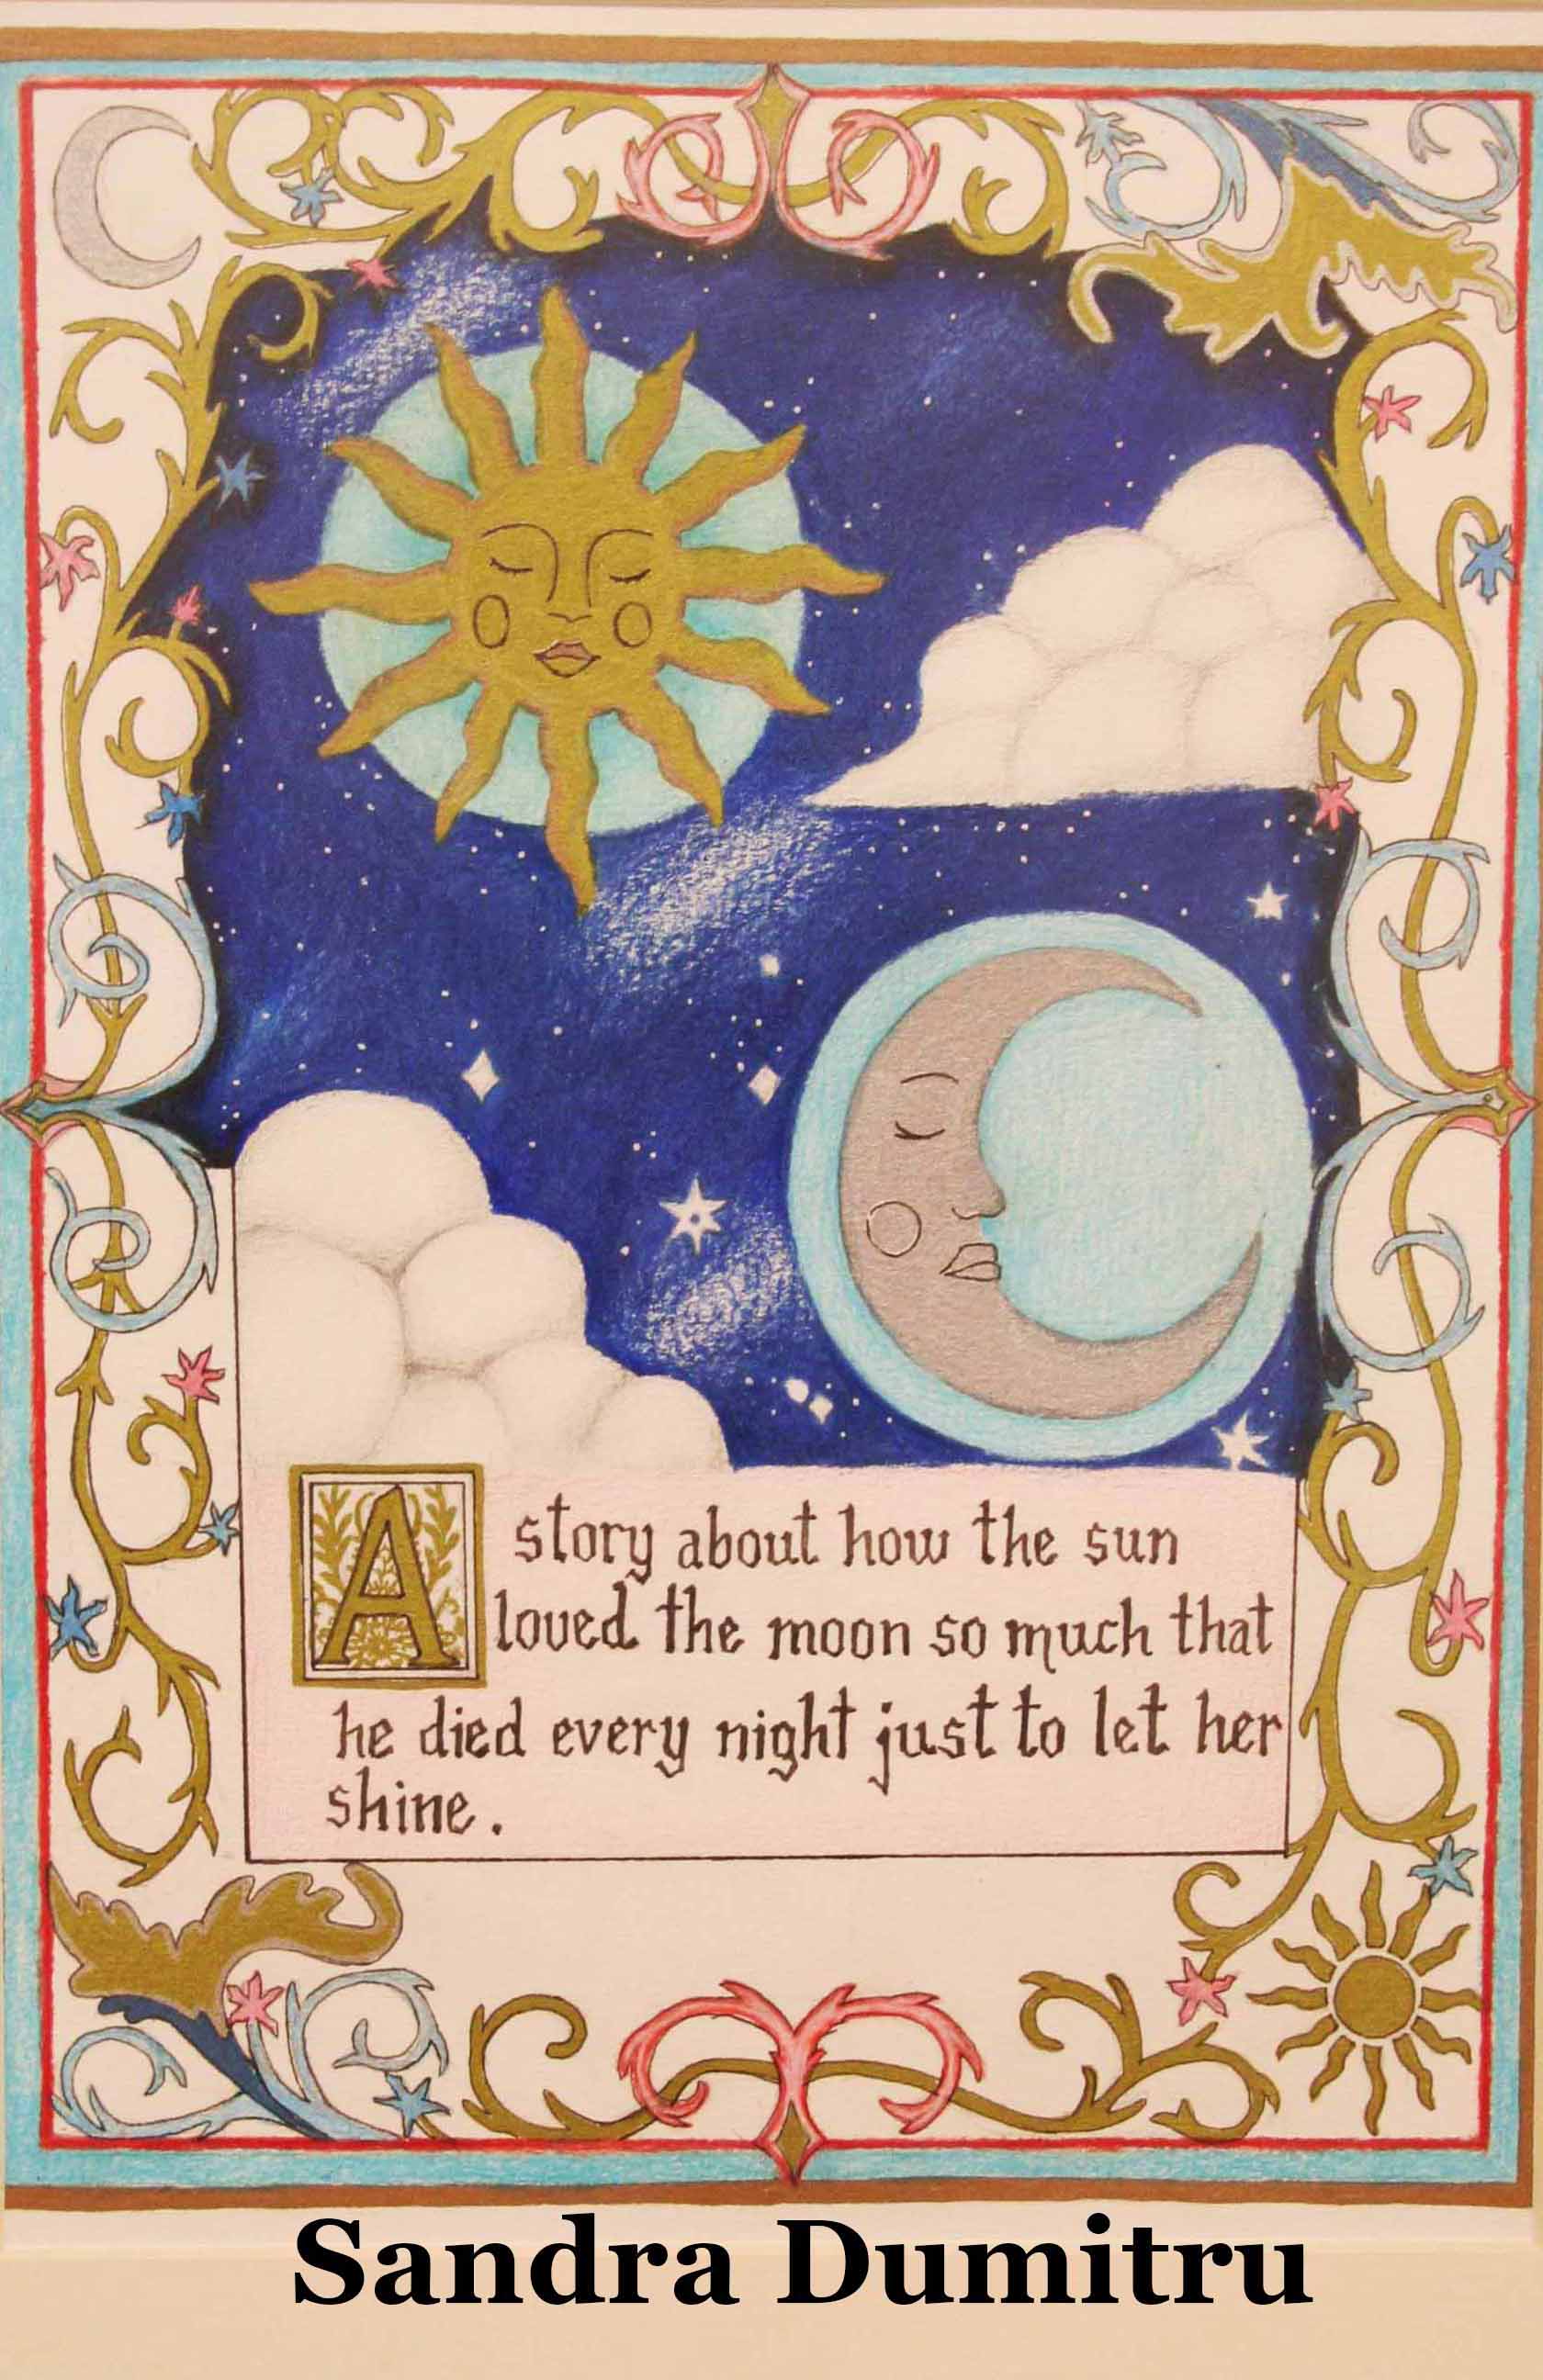 A story about how the sun
loved the moon so much that
he died every night just to let her
shine.
Sandra Dumitru